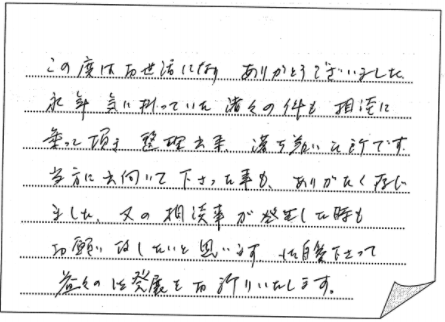 この度はお世話になり ありがとうございました
永年 気に掛っていた 諸々の件も 相談に
乗って頂き 整理出来、落ち着いた所です。
当方に出向いて下さった事も、ありがたく存じ
ました。又の相談事が発生した時も
お願い致したいと思います ご自愛下さって
益々のご発展をお祈りいたします。